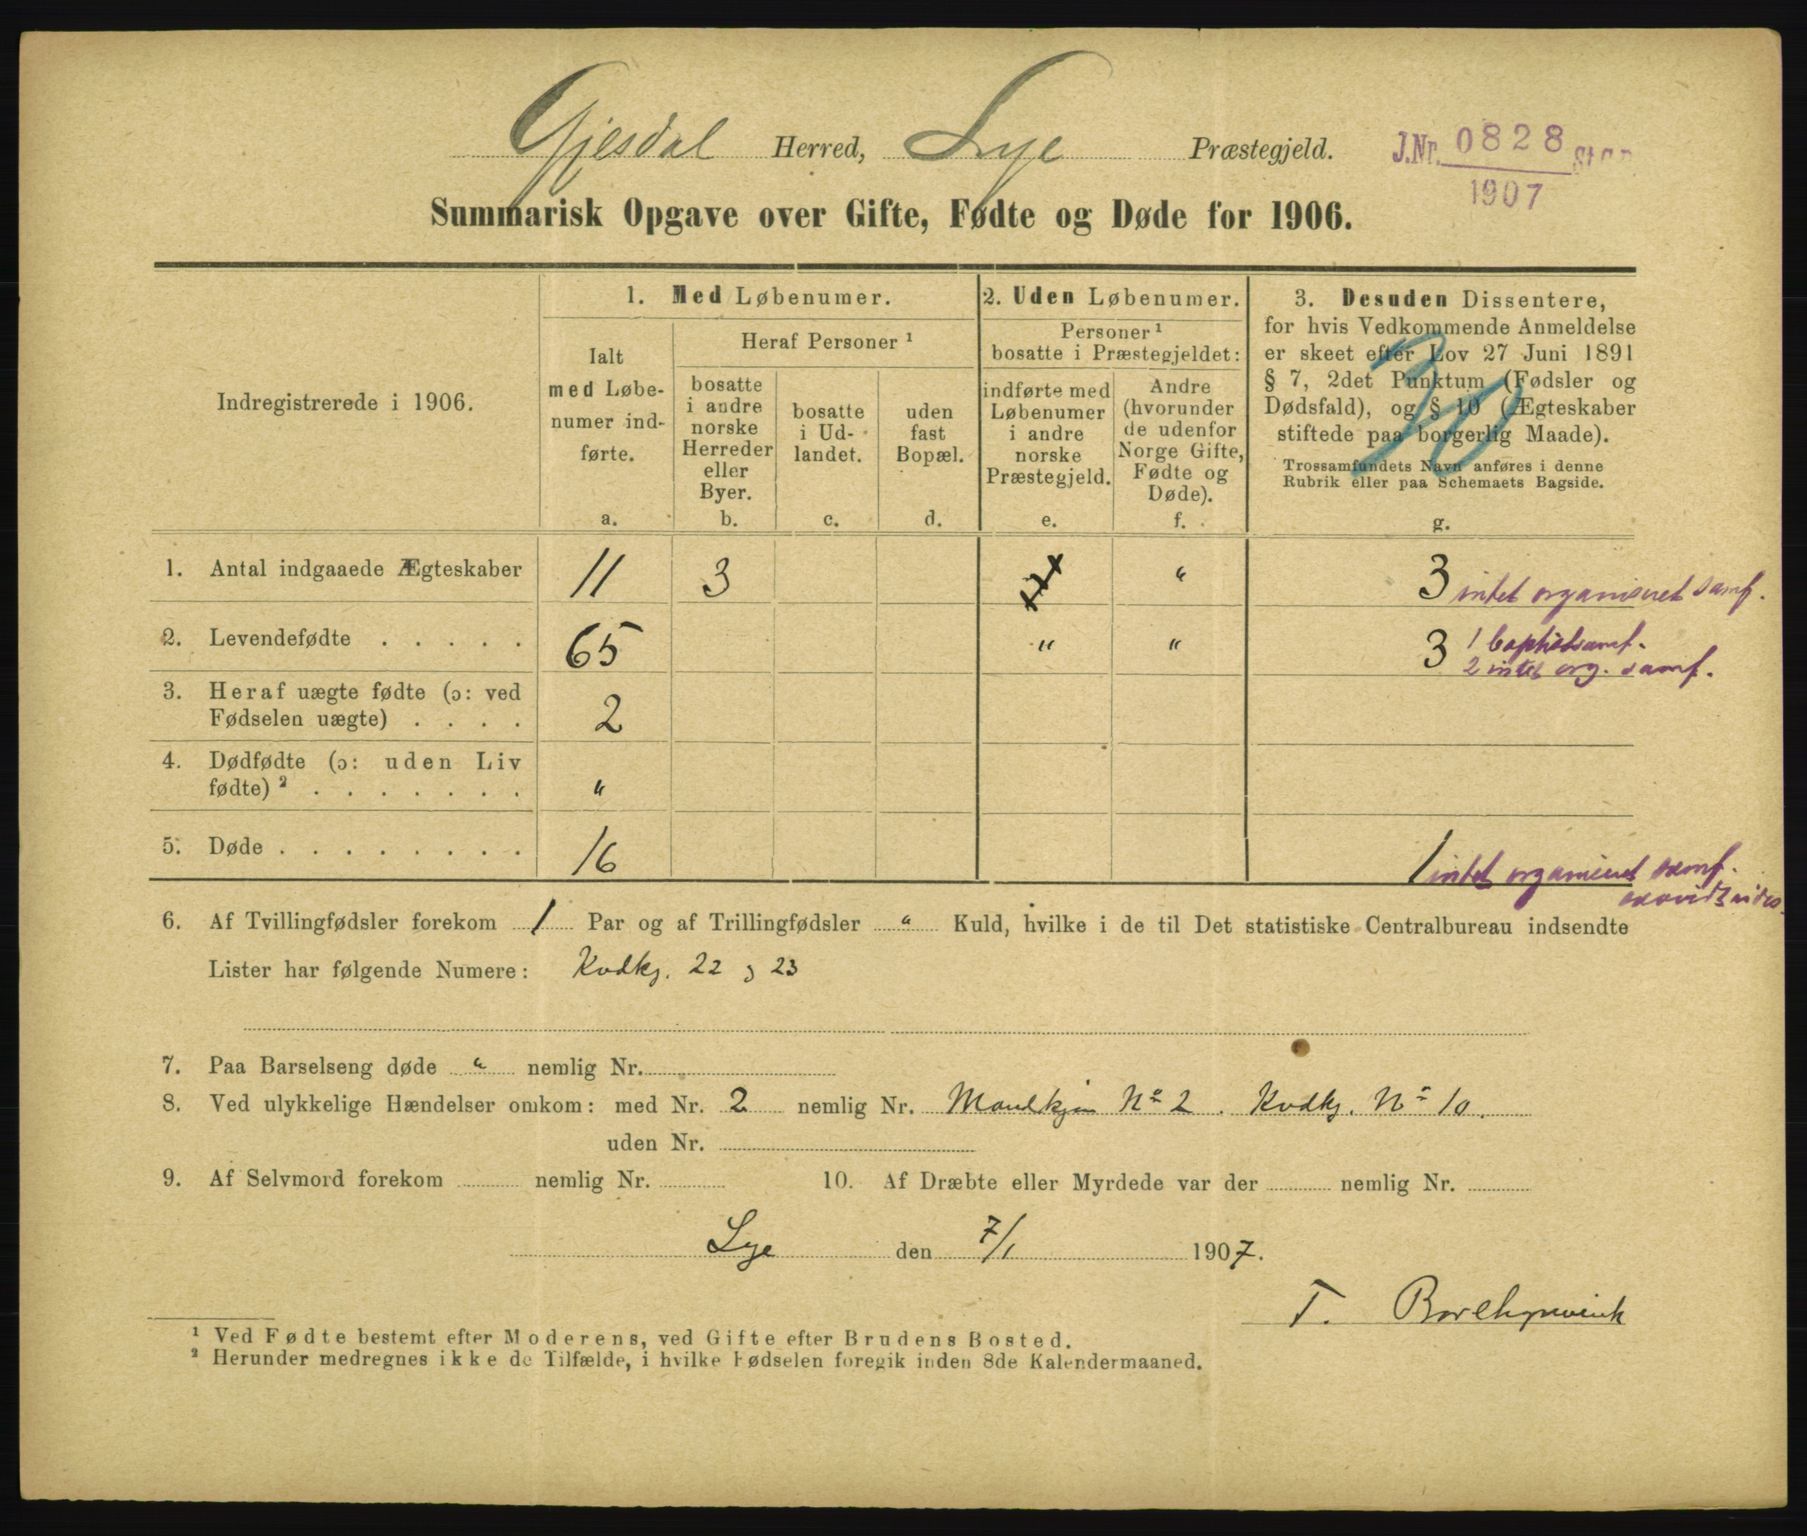 Gjesdal Herred, Lye Præstegjeld.
J.Nr. 0828 St.C.
1907
Summarisk Opgave over Gifte, Fødte og Døde for 1906.
Indregistrerede i 1906.
1. Med Løbenumer.
Ialt
med Løbe-
numer ind-
førte.
a.
Heraf Personer ¹
bosatte
i andre
norske
Herreder
eller
Byer.
b.
bosatte
i Ud-
landet.
c.
uden
fast
Bopæl.
d.
2. Uden Løbenumer.
Personer ¹
bosatte i Præstegjeldet:
indførte med
Løbenumer
i andre
norske
Præstegjeld.
e.
Andre
(hvorunder
de udenfor
Norge Gifte,
Fødte og
Døde).
f.
3. Desuden Dissentere,
for hvis Vedkommende Anmeldelse
er skeet efter Lov 27 Juni 1891
§ 7, 2det Punktum (Fødsler og
Dødsfald), og § 10 (Ægteskaber
stiftede paa borgerlig Maade).
Trossamfundets Navn anføres i denne
Rubrik eller paa Schemaets Bagside.
g.
30
1. Antal indgaaede Ægteskaber 11 3 " 3 intet organiseret samf.
2. Levendefødte . . . . . 65 " " 3 1 baptistsamf.
2 intet org. samf.
3. Heraf uægte fødte (ɔ: ved
Fødselen uægte) . . . . 2
4. Dødfødte (ɔ: uden Liv
fødte) ² . . . . . . . "
5. Døde . . . . . . . . 16 1 intet organiseret samf.
6. Af Tvillingfødsler forekom 1 Par og af Trillingfødsler " Kuld, hvilke i de til Det statistiske Centralbureau indsendte
Lister har følgende Numere: Kvdkj. 22 og 23
7. Paa Barselseng døde " nemlig Nr.
8. Ved ulykkelige Hændelser omkom: med Nr. 2 nemlig Nr. Mandkjøn No 2. Kvdkj. No 10.
uden Nr.
9. Af Selvmord forekom nemlig Nr. 10. Af Dræbte eller Myrdede var der nemlig Nr.
Lye den 7/1 1907.
T.
¹ Ved Fødte bestemt efter Moderens, ved Gifte efter Brudens Bosted.
² Herunder medregnes ikke de Tilfælde, i hvilke Fødselen foregik inden 8de Kalendermaaned.